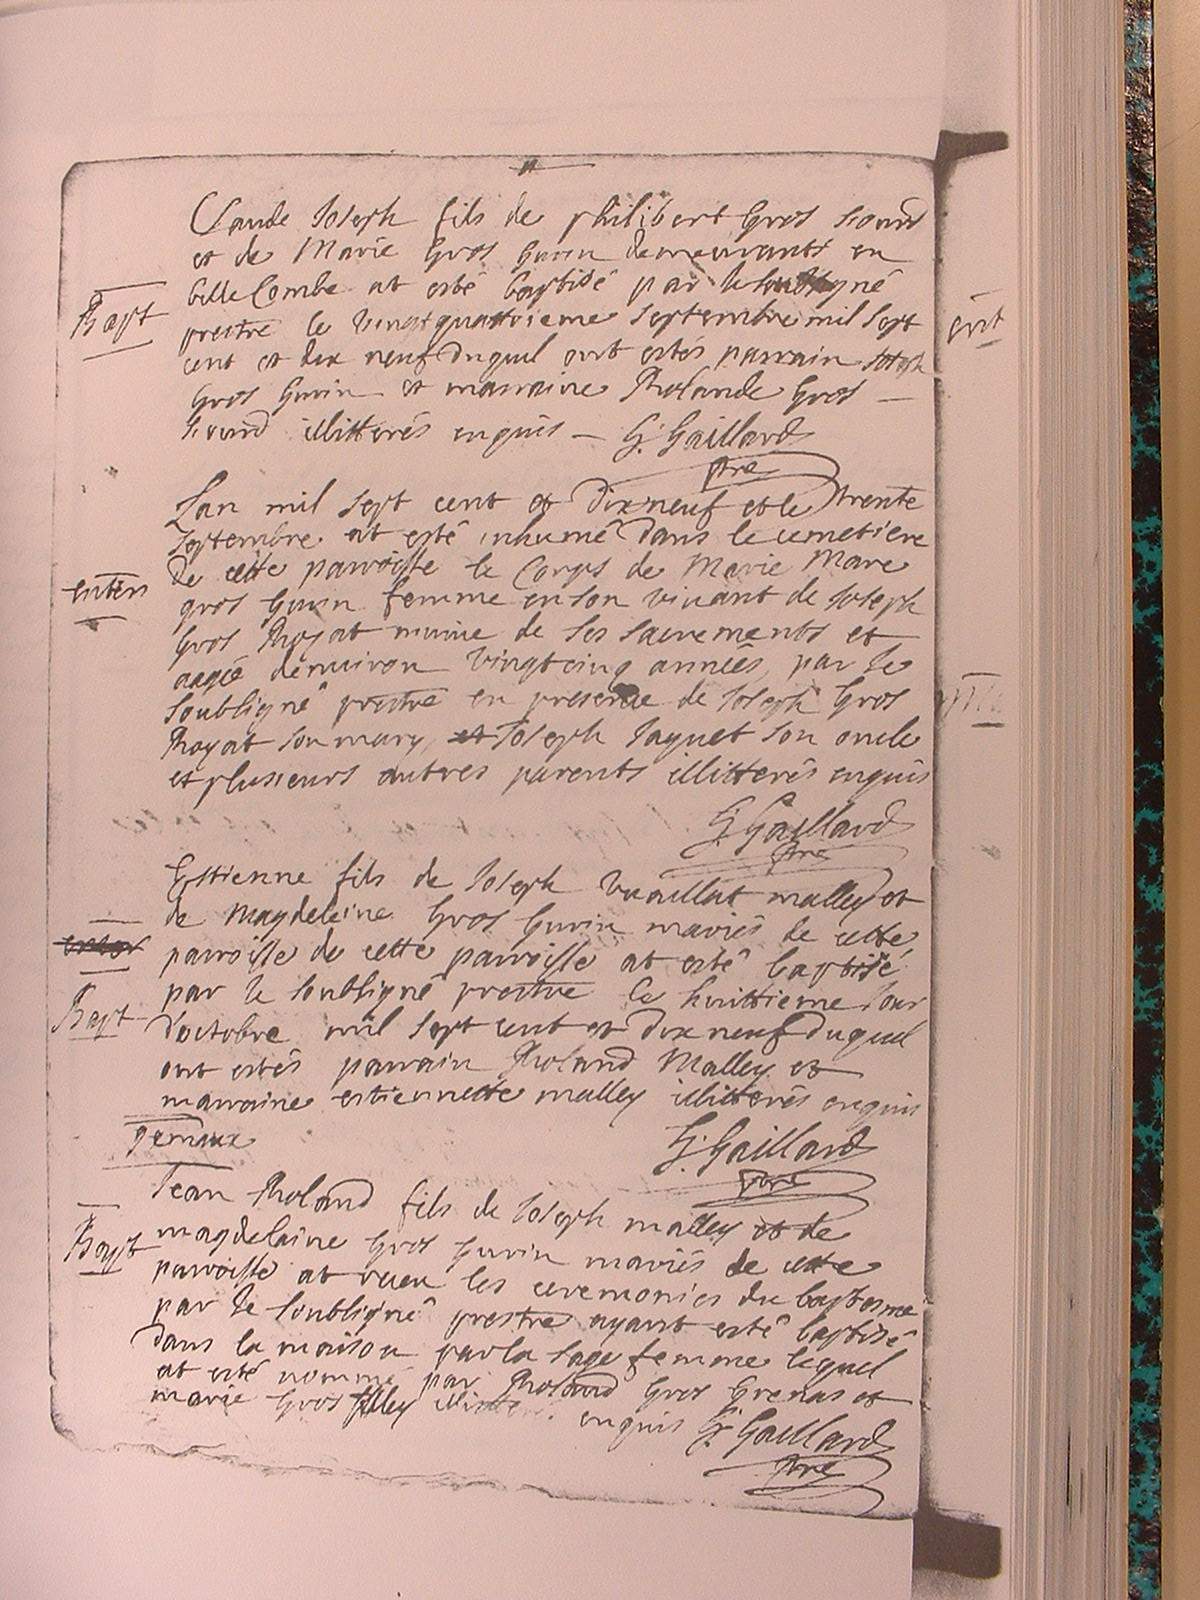 Claude Joseph fils de philibert Gros
et de Marie Gros Gurin demeurants en
belle Combe at esté baptisé par le soubsigné
Bapt
prestre le vingtquattrieme septembre mil sept
cent et dix neuf duquel ont estés parrain Joseph
Gros Gurin et marraine Rolande Gros
illitterés enquis G. Gaillard
ptre
Lan mil sept cent et dix neuf et le trente
septembre at esté inhumé dans le cemetiere
de cette parroisse le Corps de Marie Mare
enterr
gros Gurin femme en son vivant de Joseph
Gros Royat munie de ses sacrements et
aagée denviron vingtcinq années, par le
soubsigné prestre en presence de Joseph Gros
Royat son mary, et Joseph Jaquet son oncle
et plusieurs autres parents illitterés enquis
G. Gaillard
ptre
Estienne fils de Joseph Vuaillat malley et
de Magdeleine Gros Gurin mariés de cette
parroisse de cette parroisse at esté baptisé
par le soubsigné prestre le huittieme Jour
Bapt
d'octobre mil sept cent et dix neuf duquel
ont estés parrain Roland Malley et
marraine estiennette malley illitterés enquis
gemaux
G. Gaillard
ptre
Jean Roland fils de Joseph malley et de
Bapt
magdelaine Gros Gurin mariés de cette
parroisse at receu les ceremonies du baptesme
par le soubsigné prestre ayant esté baptisé
dans la maison par la sage femme lequel
at esté nommé par Roland Gros Grenas et
marie Gros filley enquis G. Gaillard
ptre